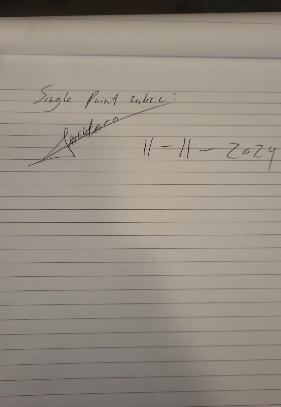 Single Point rubric:
11-11-2024